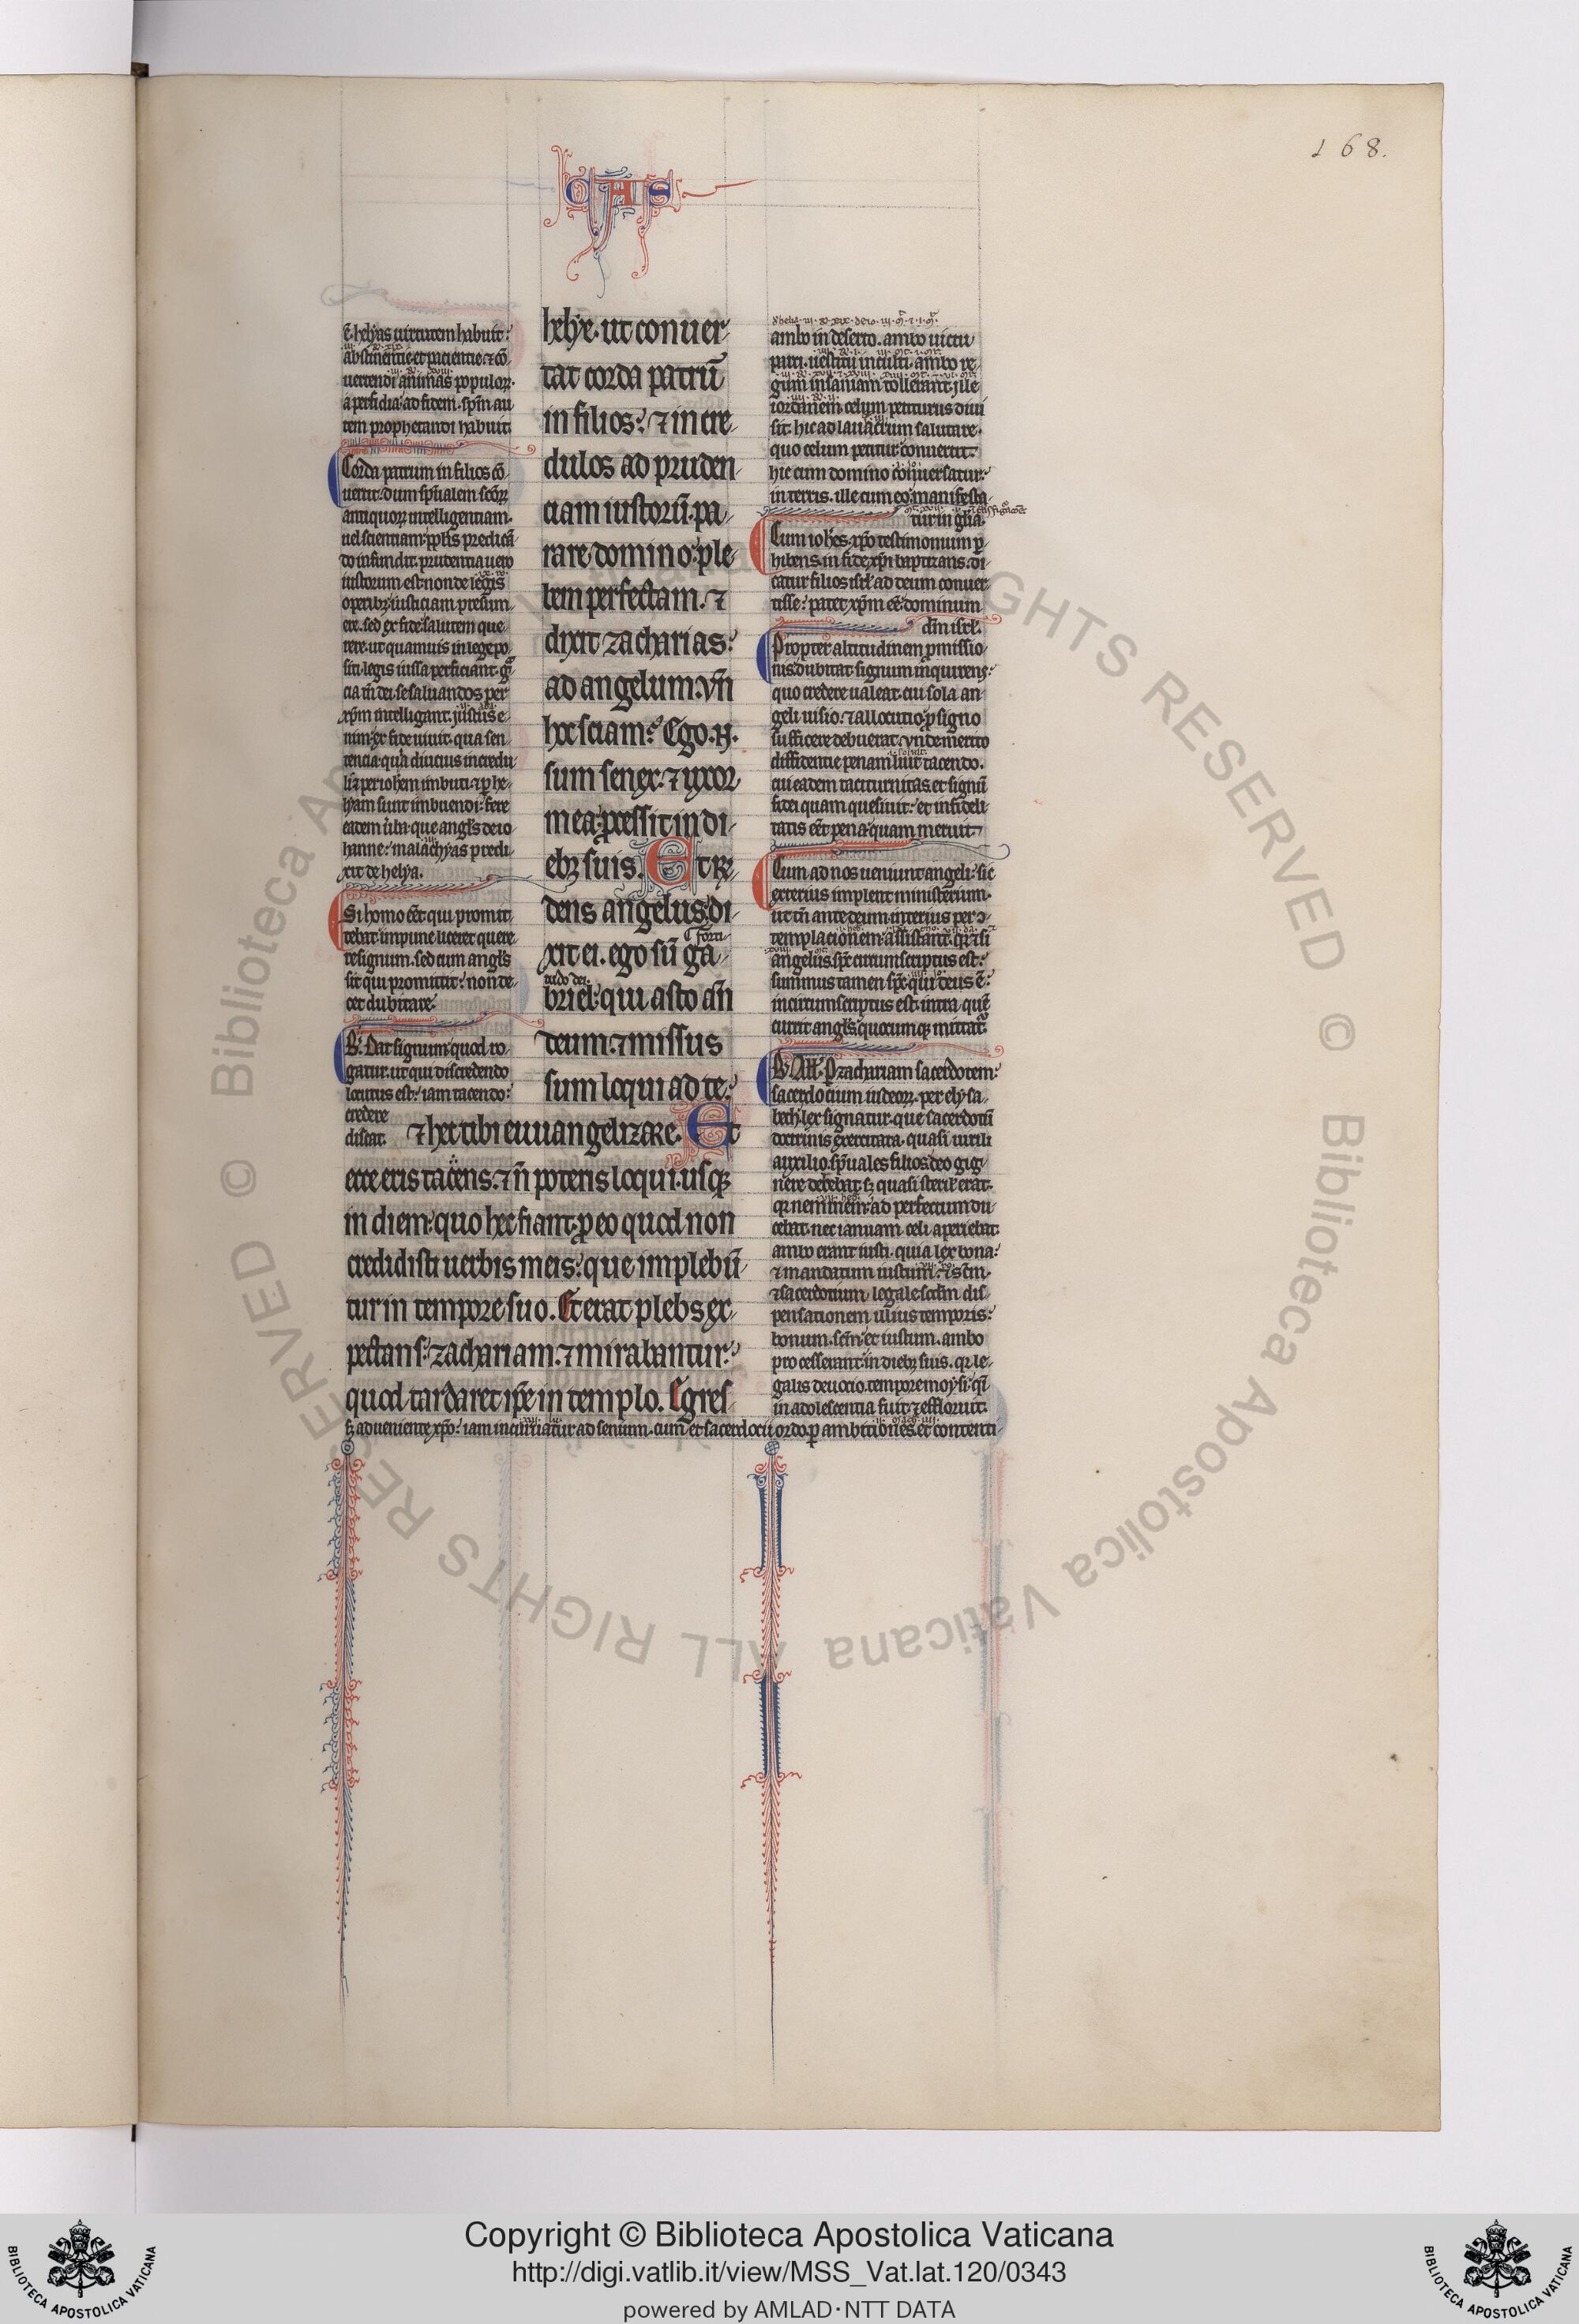 168.
CAS
ē helyas uirtutem habuit:
abstinentie et patientie ⁊ cō
uertendi animas populoꝝ.
a perfidia ad fidem. spm̄ au
tem prophetandi habuit
Corda patrum in filios cō
uertit. dum spūalem scōꝝ
antiquoꝝ intelligentiam.
uel scientiam pplis predicā
do infundit. prudentia uero
iustorum est: non de legis
operibꝫ iusticiam presum
ere. sed ex fide salutem que
rere. ut quamuis in lege po
siti. legis iussa perficiant. gr̄
cia tn̄ dei se saluandos per
xp̄m intelligant. justus e
nim ex fide uiuit. qua sen
tencia qua diucius incredu
li ⁊ per iohem imbuti. ⁊ p he
lyam sunt imbuendi. fere
eadem uba que angls de io
hanne: malachyas predi
xit de helya.
Si homo eēt qui promit
tebat. impune liceret quere
re signum. sed cum angls
sit qui promittit: non de
cet dubitare.
B. Dat signum. quod ro
gatur. ut qui discredendo
locutus est: iam tacendo:
credere
discat.
helye. ut conuer
tat corda patrū
in filios: ⁊ incre
dulos ad pruden
ciam iustorū. pa
rare domino ple
bem perfectam. ⁊
dixit zacharias:
ad angelum. vn̄
hoc sciam? Ego. n.
sum senex. ⁊ uxor
mea processit in di
ebꝫ suis. Et rn̄
dens angelus. di
forti
xit ei. ego sū ga
tudo dei.
briel. qui asto an̄
deum. ⁊ missus
sum loqui ad te:
⁊ hec tibi euuangelizare. Et
ecce eris tacens. ⁊ n̄ poteris loqui. usqꝫ
in diem quo hec fiant. p eo quod non
credidisti uerbis meis: que implebū
tur in tempore suo. Et erat plebs ex
pectans: zachariam. ⁊ mirabantur:
quod tardaret ipse in templo. Egres
ambo in deserto. ambo uictu
parci. uestitu inculti. ambo re
gum insaniam tollerant. ille
iordanem celum petiturus diui
sit. hic ad lauacrum salutare.
quo celum petitur conuertit.
hic cum domino conuersatur:
in terris. ille cum eo manifesta
tur in gl̄ia.
Cum iohes. xpo testimonium p
hibens. in fide xpi baptizans. di
catur filios isrl ad deum conuer
tisse: patet xp̄m eē dominum
dm̄ isrl.
Propter altitudinem pmissio
nis dubitat. signum inquirens:
quo credere ualeat. cui sola an
geli uisio. ⁊ allocutio p signo
sufficere debuerat. vnde merito
diffidentie penam luit tacendo.
cui eadem taciturnitas. et signū
fidei quam quesiuit: et infideli
tatis eēt pena. quam meruit.
Cum ad nos ueniunt angeli: sic
exterius implent ministerium.
ut tn̄ ante deum interius per ↄ
templacionem assistant. qr ⁊ si
angelus spc circumscriptus est:
summus tamen spc. qui deus ē:
incircumscriptus est. intra quē
currit angls quocumqꝫ mittat̄.
B. All. P zachariam sacerdotem:
sacerdocium iudeoꝝ. per elysa
beth. lex signatur. que sacerdotū
doctrinis exercitata. quasi uirili
auxilio. spūales filios deo gig
nere debebat. sꝫ quasi steril erat.
qr neminem ad perfectum du
cebat. nec ianuam celi aperiebat.
ambo erant iusti. quia lex bona:
⁊ mandatum iustum. ⁊ scm̄.
⁊ sacerdotium legale scdm dis
pensationem illius temporis:
bonum. scm̄. et iustum. ambo
processerant in diebꝫ suis. qr le
galis deuocio. tempore moysi. q̄i
in adolescentia fuit. ⁊ effloruit.
sꝫ adueniente xpo: iam incuruatur ad senium. cum et sacerdocii ordo. p ambitiones. et contenti
Copyright © Biblioteca Apostolica Vaticana
http://digi.vatlib.it/view/MSS_Vat.lat.120/0343
powered by AMLAD·NTT DATA
BIBLIOTECA APOSTOLICA VATICANA
BIBLIOTECA APOSTOLICA VATICANA
© Biblioteca Apostolica Vaticana ALL RIGHTS RESERVED